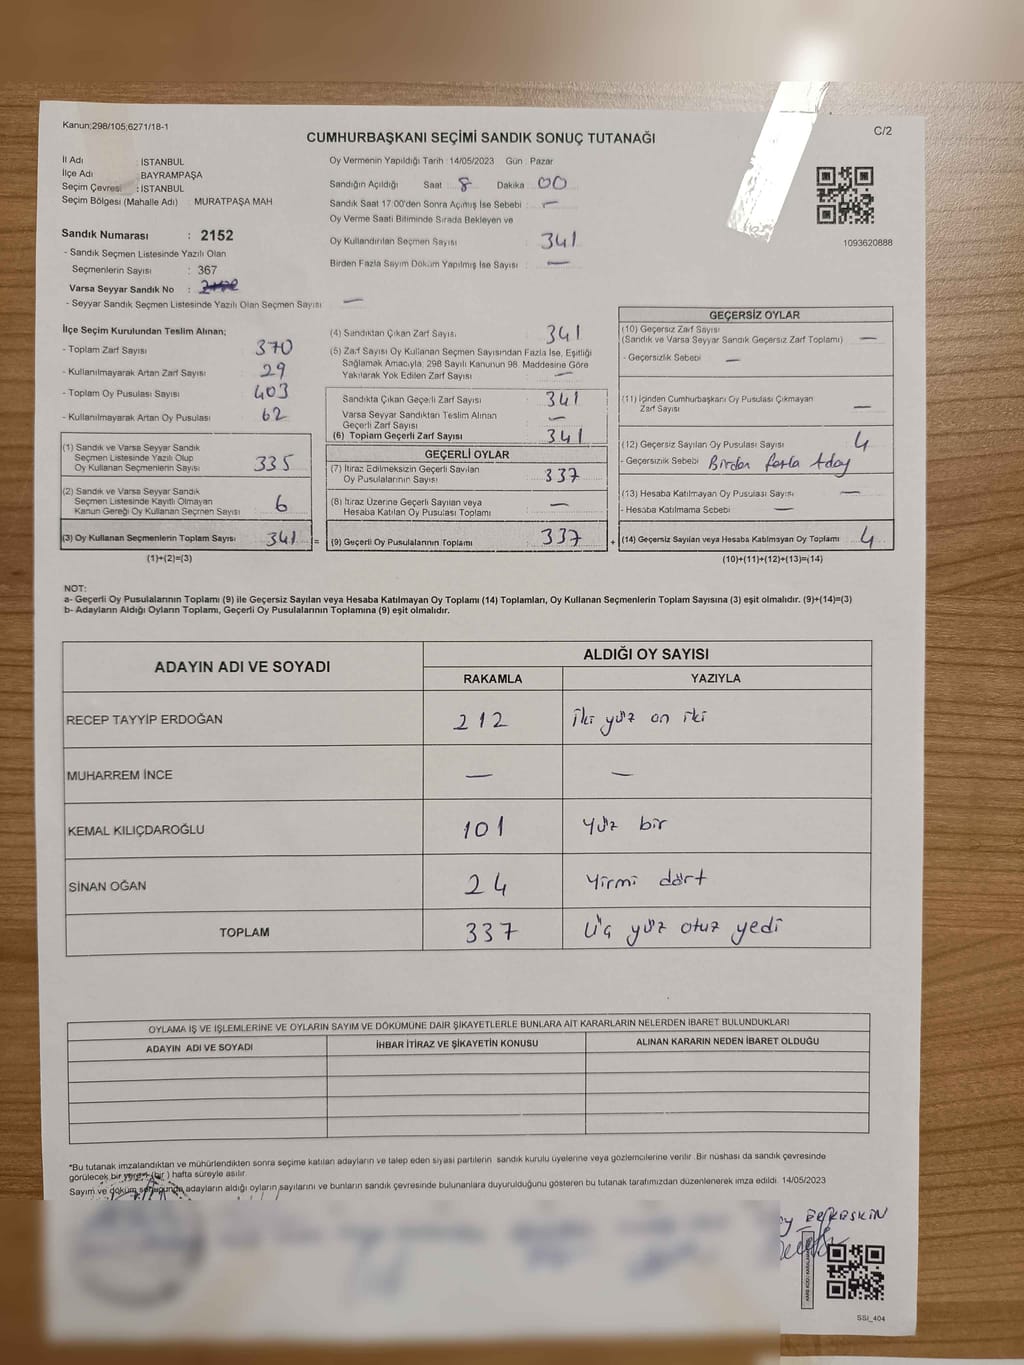 Kanun;298/105;6271/18-1
CUMHURBAŞKANI SEÇİMİ SANDIK SONUÇ TUTANAĞI
C/2
İl Adı : İSTANBUL
İlçe Adı : BAYRAMPAŞA
Seçim Çevresi : İSTANBUL
Seçim Bölgesi (Mahalle Adı) : MURATPAŞA MAH
Sandık Numarası : 2152
- Sandık Seçmen Listesinde Yazılı Olan
Seçmenlerin Sayısı : 367
Varsa Seyyar Sandık No :
- Seyyar Sandık Seçmen Listesinde Yazılı Olan Seçmen Sayısı : —
Oy Vermenin Yapıldığı Tarih : 14/05/2023 Gün : Pazar
Sandığın Açıldığı Saat 8 Dakika 00
Sandık Saat 17:00'den Sonra Açılmış İse Sebebi : —
Oy Verme Saati Bitiminde Sırada Bekleyen ve
Oy Kullandırılan Seçmen Sayısı : 341
Birden Fazla Sayım Döküm Yapılmış İse Sayısı : —
1093620888
İlçe Seçim Kurulundan Teslim Alınan;
- Toplam Zarf Sayısı : 370
- Kullanılmayarak Artan Zarf Sayısı : 29
- Toplam Oy Pusulası Sayısı : 403
- Kullanılmayarak Artan Oy Pusulası : 62
(1) Sandık ve Varsa Seyyar Sandık
Seçmen Listesinde Yazılı Olup
Oy Kullanan Seçmenlerin Sayısı : 335
(2) Sandık ve Varsa Seyyar Sandık
Seçmen Listesinde Kayıtlı Olmayan
Kanun Gereği Oy Kullanan Seçmen Sayısı : 6
(3) Oy Kullanan Seçmenlerin Toplam Sayısı : 341 =
(1)+(2)=(3)
(4) Sandıktan Çıkan Zarf Sayısı : 341
(5) Zarf Sayısı Oy Kullanan Seçmen Sayısından Fazla İse, Eşitliği
Sağlamak Amacıyla; 298 Sayılı Kanunun 98. Maddesine Göre
Yakılarak Yok Edilen Zarf Sayısı : —
Sandıkta Çıkan Geçerli Zarf Sayısı : 341
Varsa Seyyar Sandıktan Teslim Alınan
Geçerli Zarf Sayısı : —
(6) Toplam Geçerli Zarf Sayısı : 341
GEÇERLİ OYLAR
(7) İtiraz Edilmeksizin Geçerli Sayılan
Oy Pusulalarının Sayısı : 337
(8) İtiraz Üzerine Geçerli Sayılan veya
Hesaba Katılan Oy Pusulası Toplamı : —
(9) Geçerli Oy Pusulalarının Toplamı : 337 +
GEÇERSİZ OYLAR
(10) Geçersiz Zarf Sayısı
(Sandık ve Varsa Seyyar Sandık Geçersiz Zarf Toplamı) : —
- Geçersizlik Sebebi : —
(11) İçinden Cumhurbaşkanı Oy Pusulası Çıkmayan
Zarf Sayısı : —
(12) Geçersiz Sayılan Oy Pusulası Sayısı : 4
- Geçersizlik Sebebi : Birden fazla Aday
(13) Hesaba Katılmayan Oy Pusulası Sayısı : —
- Hesaba Katılmama Sebebi : —
(14) Geçersiz Sayılan veya Hesaba Katılmayan Oy Toplamı : 4
(10)+(11)+(12)+(13)=(14)
NOT:
a- Geçerli Oy Pusulalarının Toplamı (9) ile Geçersiz Sayılan veya Hesaba Katılmayan Oy Toplamı (14) Toplamları, Oy Kullanan Seçmenlerin Toplam Sayısına (3) eşit olmalıdır. (9)+(14)=(3)
b- Adayların Aldığı Oyların Toplamı, Geçerli Oy Pusulalarının Toplamına (9) eşit olmalıdır.
ADAYIN ADI VE SOYADI
ALDIĞI OY SAYISI
RAKAMLA YAZIYLA
RECEP TAYYİP ERDOĞAN 212 İki yüz on iki
MUHARREM İNCE — —
KEMAL KILIÇDAROĞLU 101 yüz bir
SİNAN OĞAN 24 yirmi dört
TOPLAM 337 Üç yüz otuz yedi
OYLAMA İŞ VE İŞLEMLERİNE VE OYLARIN SAYIM VE DÖKÜMÜNE DAİR ŞİKAYETLERLE BUNLARA AİT KARARLARIN NELERDEN İBARET BULUNDUKLARI
ADAYIN ADI VE SOYADI İHBAR İTİRAZ VE ŞİKAYETİN KONUSU ALINAN KARARIN NEDEN İBARET OLDUĞU
*Bu tutanak imzalandıktan ve mühürlendikten sonra seçime katılan adayların ve talep eden siyasi partilerin sandık kurulu üyelerine veya gözlemcilerine verilir. Bir nüshası da sandık çevresinde
görülecek bir yerde (bir ) hafta süreyle asılır.
Sayım ve döküm sonucunda adayların aldığı oyların sayılarını ve bunların sandık çevresinde bulunanlara duyurulduğunu gösteren bu tutanak tarafımızdan düzenlenerek imza edildi. 14/05/2023
SSİ_404